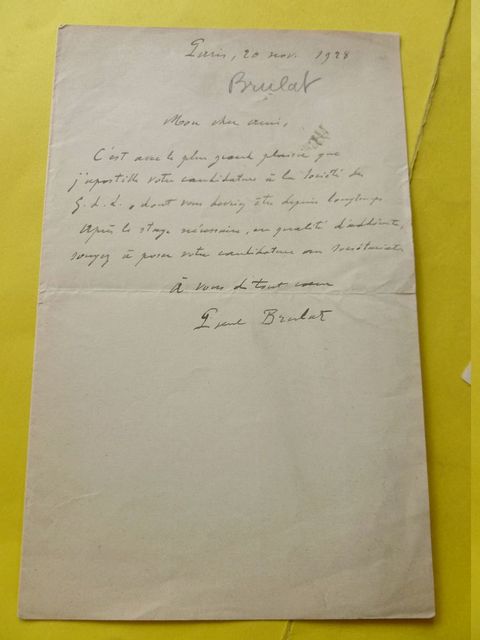 Paris, 20 nov. 1928
Brulat
Mon cher ami,
C'est avec le plus grand plaisir que
j'apostille votre candidature à la Société des
G. d. L., dont vous devriez être depuis longtemps
Après le stage nécessaire, en qualité d'adhérent,
songez à poser votre candidature au sociétariat
À vous de tout cœur
Paul Brulat